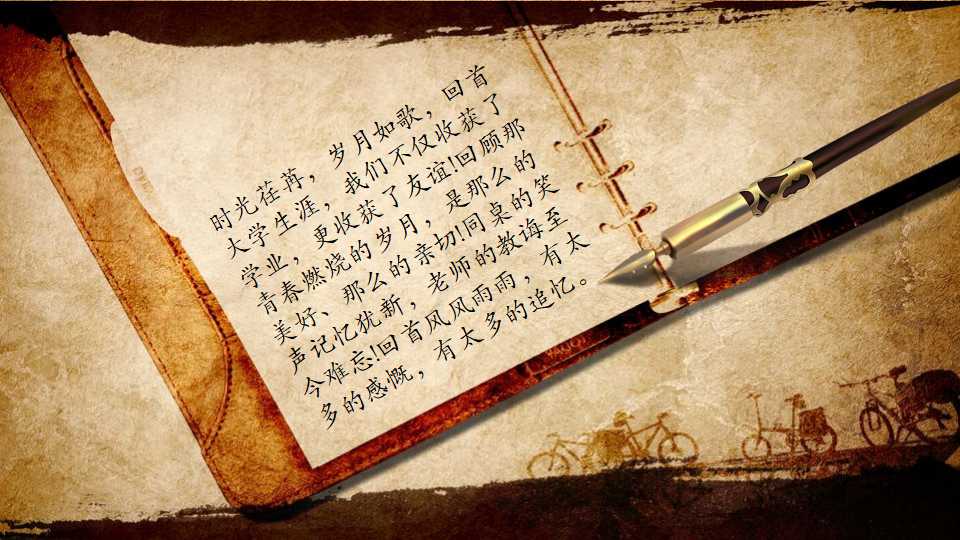 时光荏苒，岁月如歌，回首
大学生涯，我们不仅收获了
学业，更收获了友谊!回顾那
青春燃烧的岁月，是那么的
美好、那么的亲切!同桌的笑
声记忆犹新，老师的教诲至
今难忘!回首风风雨雨，有太
多的感慨，有太多的追忆。